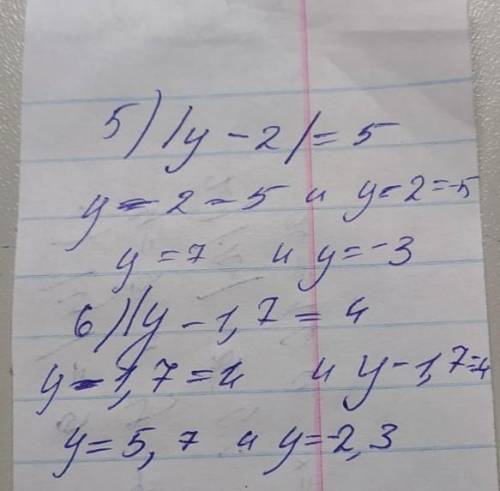 5) |y - 2| = 5
y - 2 = 5 и y - 2 = -5
y = 7 и y = -3
6) |y - 1,7 = 4
y - 1,7 = 4 и y - 1,7 = 4
y = 5,7 и y = -2,3